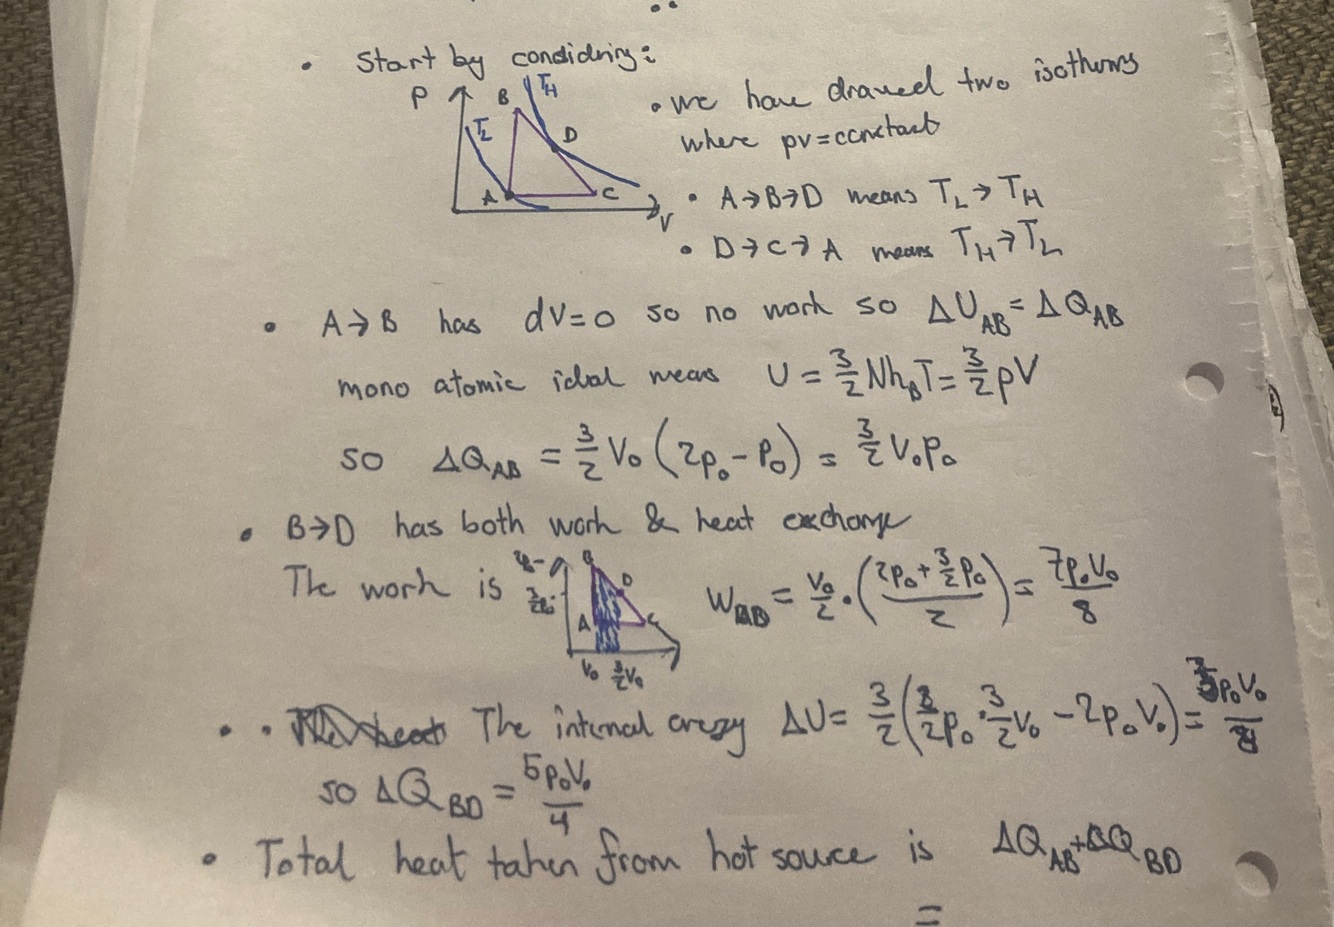 • Start by considring:
P B T_H
T_L D
A C V
• we have drawed two isotherms
where pv=constant
• A→B→D means T_L→T_H
• D→C→A means T_H→T_L
• A→B has dV=0 so no work so ΔU_AB = ΔQ_AB
mono atomic ideal means U = 3/2 Nk_BT = 3/2 pV
so ΔQ_AB = 3/2 V₀ (2p₀-p₀) = 3/2 V₀p₀
• B→D has both work & heat exchange
The work is
B D
A C
V₀ 3/2V₀
W_BD = V₀/2 · ((2p₀+3/2p₀)/2) = 7p₀V₀/8
• • The internal energy ΔU = 3/2 (3/2p₀·3/2V₀ - 2p₀V₀) = 3p₀V₀/8
so ΔQ_BD = 5p₀V₀/4
• Total heat taken from hot source is ΔQ_AB+ΔQ_BD
=